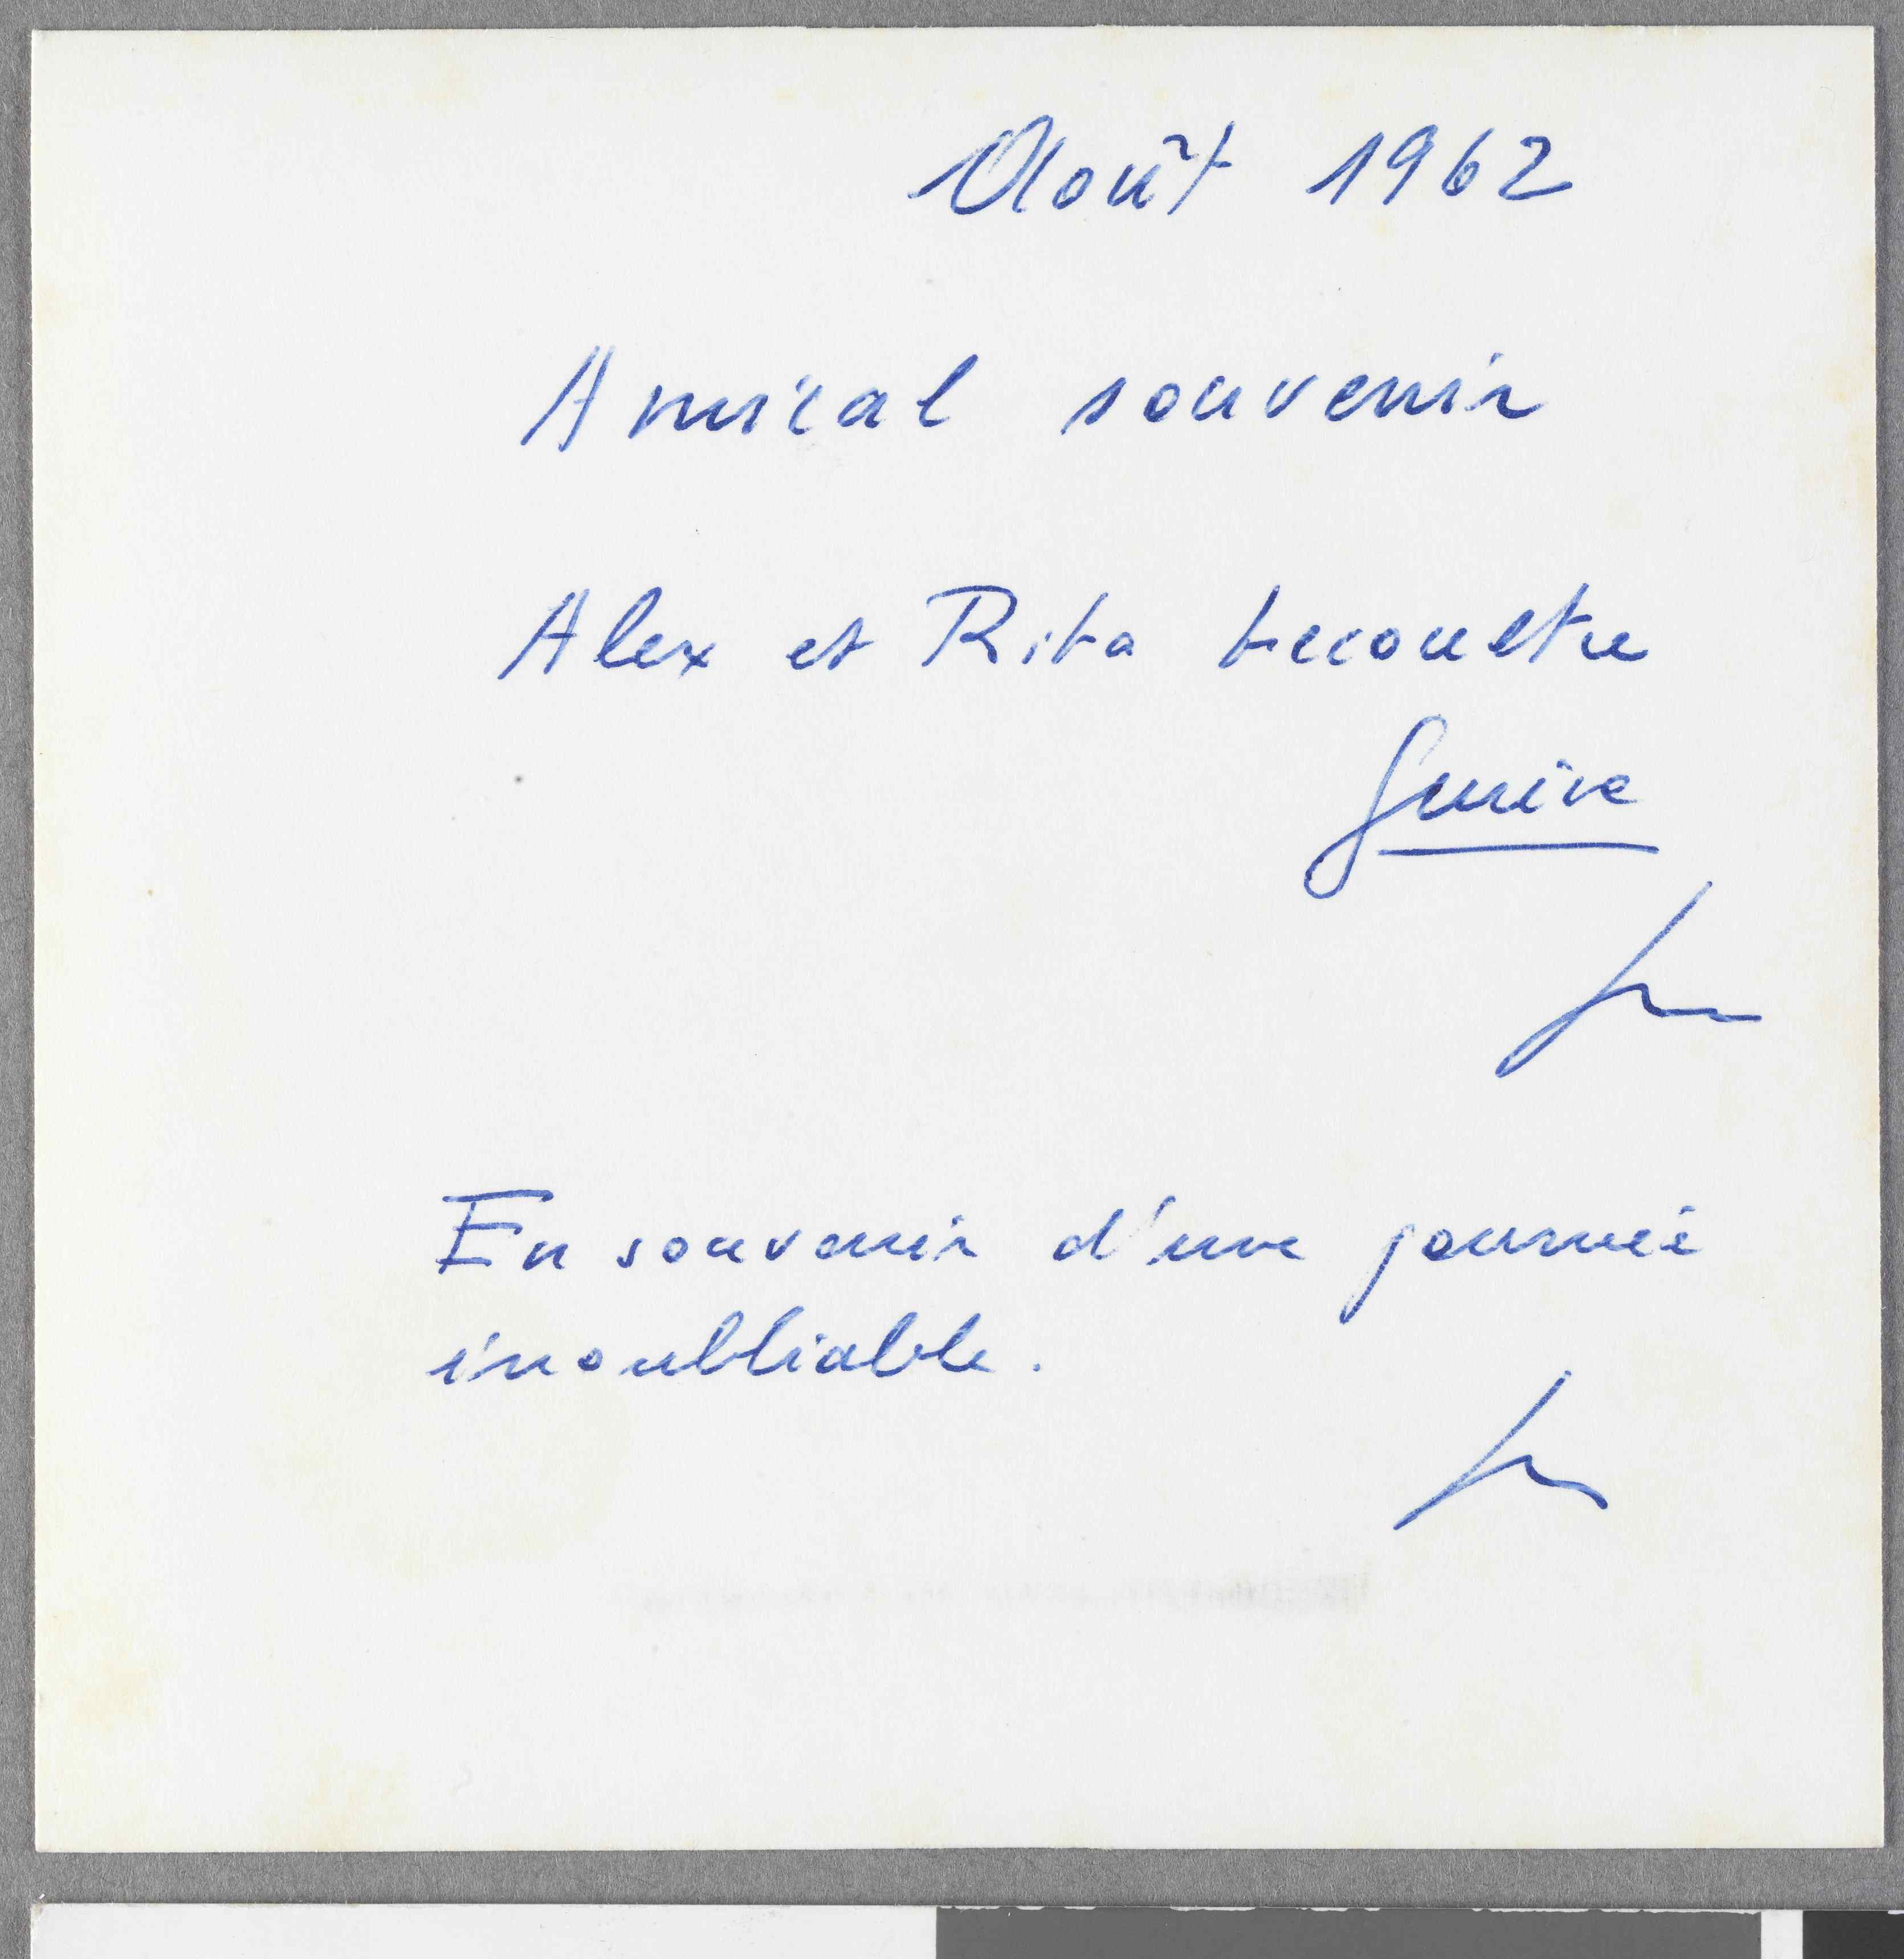 Août 1962
Amical souvenir
Alex et Rita Lecoultre
Genève
En souvenir d'une journée
inoubliable.